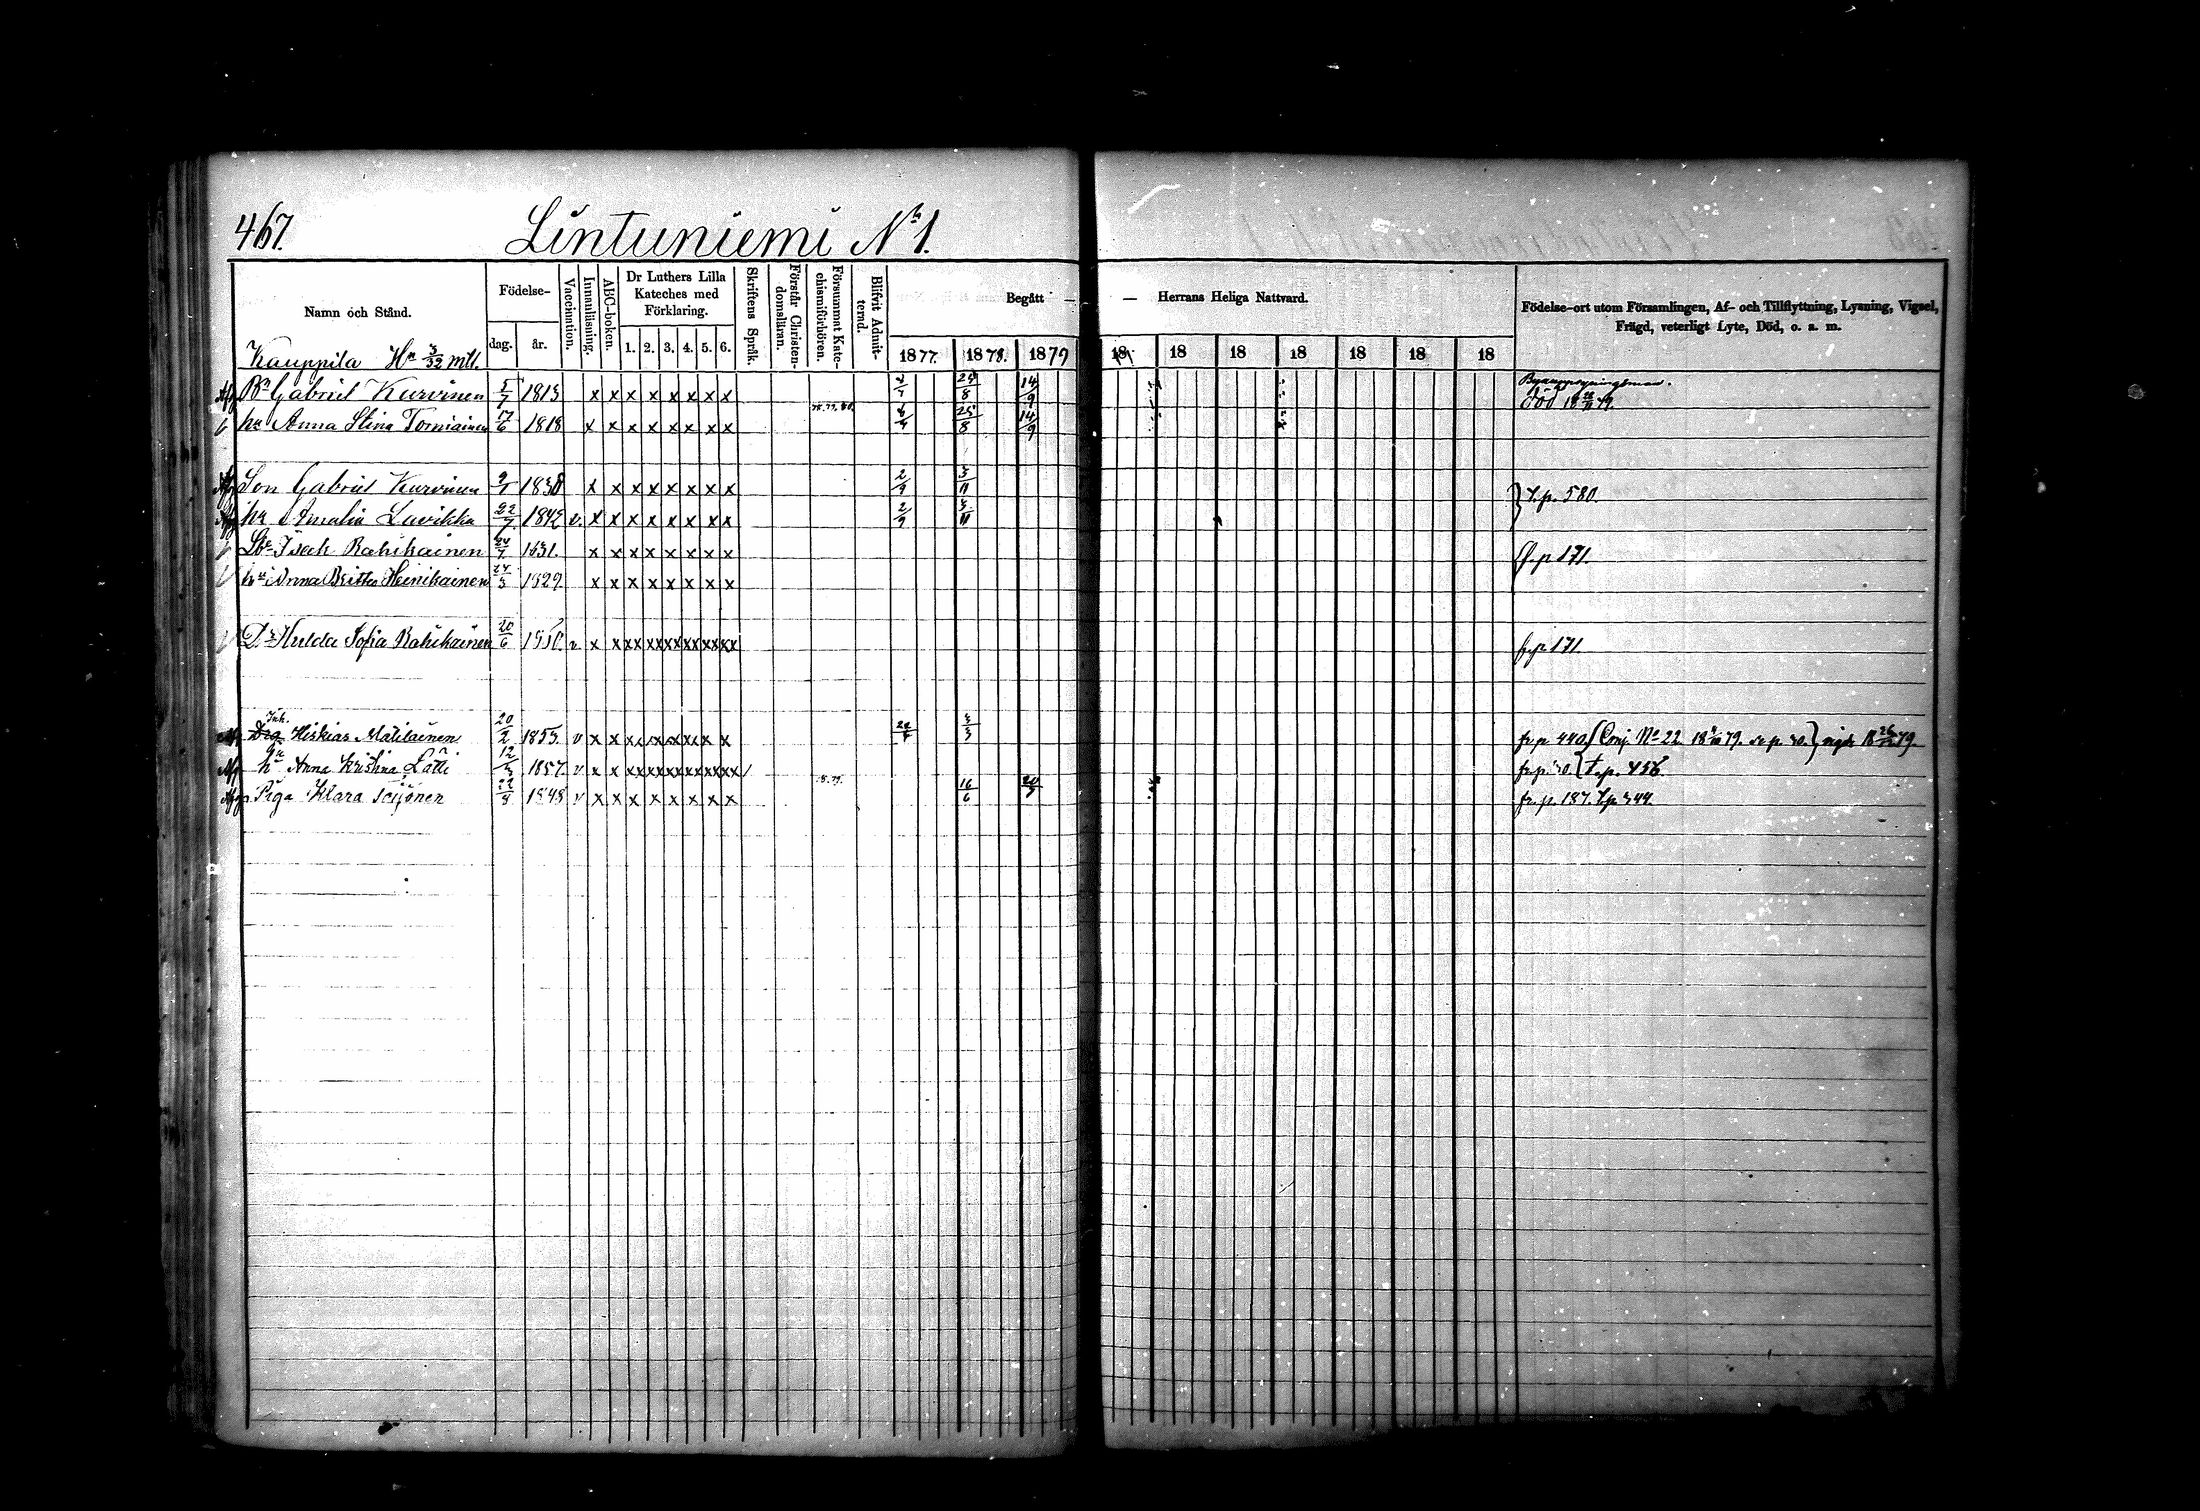 467.
Lintuniemi No 1.
Namn och Stånd.
Födelse-
dag.
år.
Vaccination.
Innanläsning.
ABC-boken.
Dr Luthers Lilla
Kateches med
Förklaring.
1. 2. 3. 4. 5. 6.
Skriftens Språk.
Förstår Christen-
domsläran.
Försummat Kate-
chismiförhören.
Blifvit Admit-
terad.
Begått — — Herrans Heliga Nattvard.
1877. 1878. 1879 18 18 18 18 18 18 18
Födelse-ort utom Församlingen, Af- och Tillflyttning, Lysning, Vigsel,
Frägd, veterligt Lyte, Död, o. a. m.
Kauppila Hn 3/32 mtl.
Bn Gabriel Kurvinen 5/7 1813 x x x x x x x x 25/8 14/9 död 79.
hu Anna Stina Torniainen 17/6 1818 x x x x x x x x 25/8 14/9
Son Gabriel Kurvinen 1838 x x x x x x x x 2/9 3/11 } t.p. 580.
hu Amalia Lavikka 22/7 1842 v. x x x x x x x x 2/9 3/11
Isach Rahikainen 24/7 1831. x x x x x x x x fr. p 171.
hu Anna Britta Heinikainen 24/5 1829 x x x x x x x x
Dr Hulda Sofia Rahikainen 20/6 1850. v x x xx xx xx xx xx xx fr. p 171.
Inh.
Drg Hiskias Matilainen 20/2 1855. v x x x x x x fr p 440. Conj. No 22 79. se p. 30. } vigde 79.
hu Anna Kristina Lätti 12/5 1857. v x x xx xx xx xx xx xx fr. p. 30. { t.p. 456.
Piga Klara Seijonen 22/8 1848 v x x x x x x x x 16/6 fr. p. 187. t.p 344.